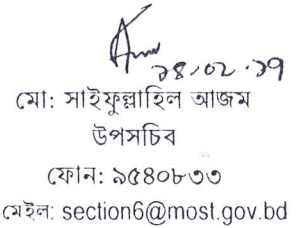 ২৪.০২.১৯
মো: সাইফুল্লাহিল আজম
উপসচিব
ফোন: ৯৫৪০৮৩৩
মেইল: section6@most.gov.bd